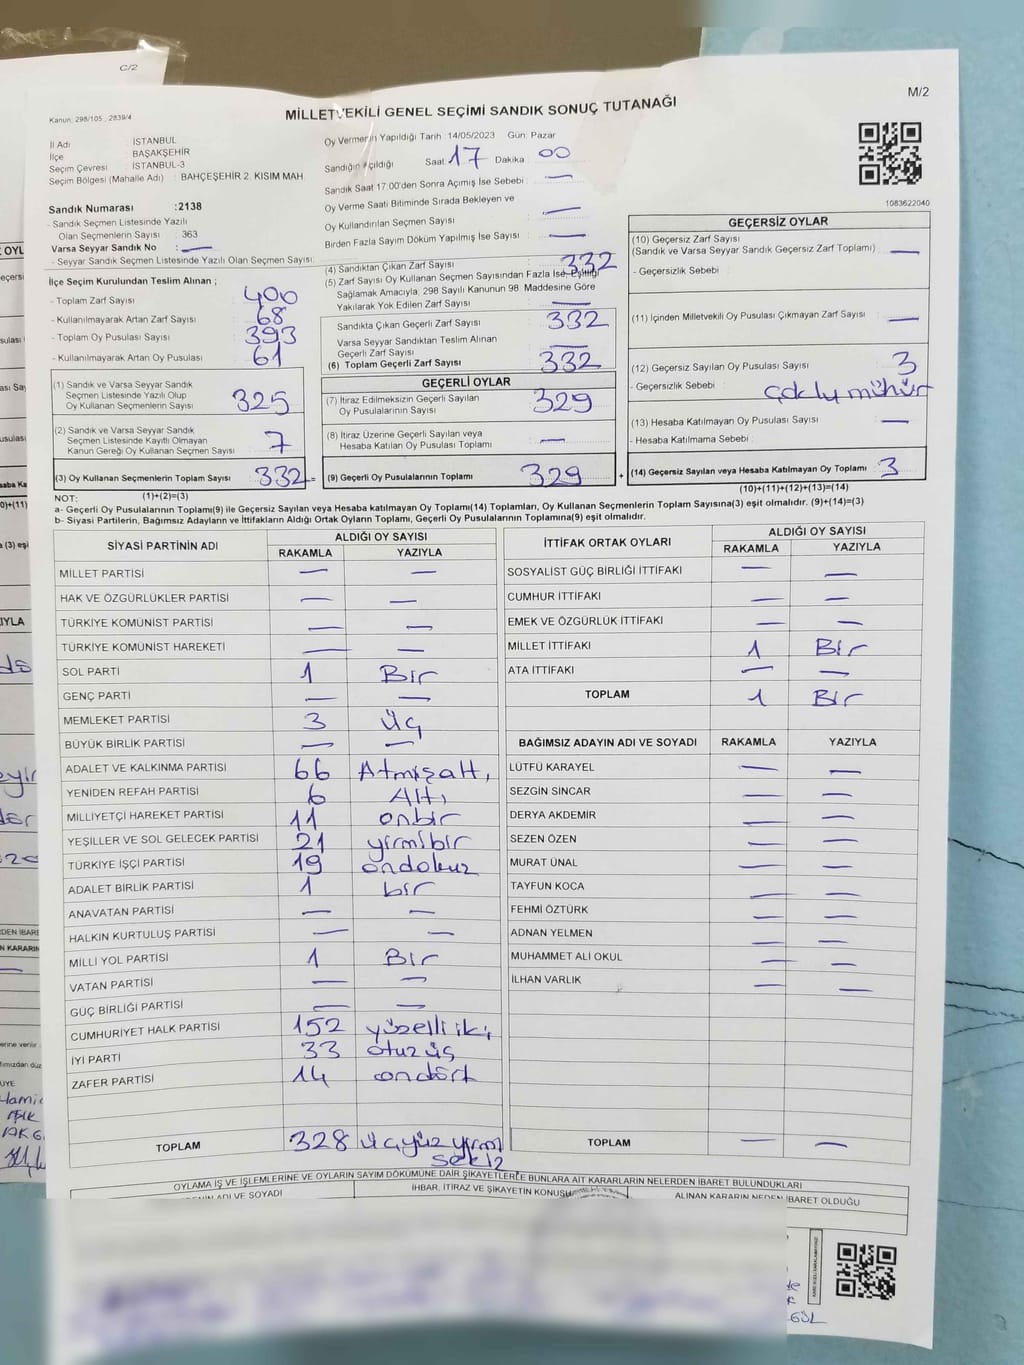 C/2
M/2
Kanun: 298/105 , 2839/4
MİLLETVEKİLİ GENEL SEÇİMİ SANDIK SONUÇ TUTANAĞI
İl Adı İSTANBUL
İlçe BAŞAKŞEHİR
Seçim Çevresi : İSTANBUL-3
Seçim Bölgesi (Mahalle Adı) : BAHÇEŞEHİR 2. KISIM MAH.
Sandık Numarası :2138
- Sandık Seçmen Listesinde Yazılı
Olan Seçmenlerin Sayısı : 363
Varsa Seyyar Sandık No : —
- Seyyar Sandık Seçmen Listesinde Yazılı Olan Seçmen Sayısı:
İlçe Seçim Kurulundan Teslim Alınan ;
- Toplam Zarf Sayısı 400
- Kullanılmayarak Artan Zarf Sayısı : 68
- Toplam Oy Pusulası Sayısı : 393
- Kullanılmayarak Artan Oy Pusulası : 61
(1) Sandık ve Varsa Seyyar Sandık
Seçmen Listesinde Yazılı Olup
Oy Kullanan Seçmenlerin Sayısı 325
(2) Sandık ve Varsa Seyyar Sandık
Seçmen Listesinde Kayıtlı Olmayan
Kanun Gereği Oy Kullanan Seçmen Sayısı 7
(3) Oy Kullanan Seçmenlerin Toplam Sayısı 332 =
Oy Vermenin Yapıldığı Tarih : 14/05/2023 Gün: Pazar
Sandığın Açıldığı Saat: 17 Dakika : 00
Sandık Saat 17:00'den Sonra Açımış İse Sebebi : —
Oy Verme Saati Bitiminde Sırada Bekleyen ve
Oy Kullandırılan Seçmen Sayısı : —
Birden Fazla Sayım Döküm Yapılmış İse Sayısı : —
(4) Sandıktan Çıkan Zarf Sayısı 332
(5) Zarf Sayısı Oy Kullanan Seçmen Sayısından Fazla İse, Eşitliği
Sağlamak Amacıyla, 298 Sayılı Kanunun 98. Maddesine Göre
Yakılarak Yok Edilen Zarf Sayısı : —
Sandıkta Çıkan Geçerli Zarf Sayısı : 332
Varsa Seyyar Sandıktan Teslim Alınan
Geçerli Zarf Sayısı : —
(6) Toplam Geçerli Zarf Sayısı 332
GEÇERLİ OYLAR
(7) İtiraz Edilmeksizin Geçerli Sayılan
Oy Pusulalarının Sayısı 329
(8) İtiraz Üzerine Geçerli Sayılan veya
Hesaba Katılan Oy Pusulası Toplamı —
(9) Geçerli Oy Pusulalarının Toplamı 329 +
1083622040
GEÇERSİZ OYLAR
(10) Geçersiz Zarf Sayısı
(Sandık ve Varsa Seyyar Sandık Geçersiz Zarf Toplamı) —
- Geçersizlik Sebebi :
(11) İçinden Milletvekili Oy Pusulası Çıkmayan Zarf Sayısı —
(12) Geçersiz Sayılan Oy Pusulası Sayısı 3
- Geçersizlik Sebebi : çoklu mühür
(13) Hesaba Katılmayan Oy Pusulası Sayısı —
- Hesaba Katılmama Sebebi :
(14) Geçersiz Sayılan veya Hesaba Katılmayan Oy Toplamı 3
NOT: (1)+(2)=(3) (10)+(11)+(12)+(13)=(14)
a- Geçerli Oy Pusulalarının Toplamı(9) ile Geçersiz Sayılan veya Hesaba katılmayan Oy Toplamı(14) Toplamları, Oy Kullanan Seçmenlerin Toplam Sayısına(3) eşit olmalıdır. (9)+(14)=(3)
b- Siyasi Partilerin, Bağımsız Adayların ve İttifakların Aldığı Ortak Oyların Toplamı, Geçerli Oy Pusulalarının Toplamına(9) eşit olmalıdır.
SİYASİ PARTİNİN ADI ALDIĞI OY SAYISI
RAKAMLA YAZIYLA
MİLLET PARTİSİ — —
HAK VE ÖZGÜRLÜKLER PARTİSİ — —
TÜRKİYE KOMÜNİST PARTİSİ — —
TÜRKİYE KOMÜNİST HAREKETİ — —
SOL PARTİ 1 Bir
GENÇ PARTİ — —
MEMLEKET PARTİSİ 3 Üç
BÜYÜK BİRLİK PARTİSİ — —
ADALET VE KALKINMA PARTİSİ 66 Atmışaltı
YENİDEN REFAH PARTİSİ 6 Altı
MİLLİYETÇİ HAREKET PARTİSİ 11 onbir
YEŞİLLER VE SOL GELECEK PARTİSİ 21 yirmibir
TÜRKİYE İŞÇİ PARTİSİ 19 ondokuz
ADALET BİRLİK PARTİSİ 1 bir
ANAVATAN PARTİSİ — —
HALKIN KURTULUŞ PARTİSİ — —
MİLLİ YOL PARTİSİ 1 Bir
VATAN PARTİSİ — —
GÜÇ BİRLİĞİ PARTİSİ — —
CUMHURİYET HALK PARTİSİ 152 yüzelliiki
İYİ PARTİ 33 otuzüç
ZAFER PARTİSİ 14 ondört
TOPLAM 328 Üçyüz yirmi
sekiz
İTTİFAK ORTAK OYLARI ALDIĞI OY SAYISI
RAKAMLA YAZIYLA
SOSYALİST GÜÇ BİRLİĞİ İTTİFAKI — —
CUMHUR İTTİFAKI — —
EMEK VE ÖZGÜRLÜK İTTİFAKI — —
MİLLET İTTİFAKI 1 Bir
ATA İTTİFAKI — —
TOPLAM 1 Bir
BAĞIMSIZ ADAYIN ADI VE SOYADI RAKAMLA YAZIYLA
LÜTFÜ KARAYEL — —
SEZGİN SİNCAR — —
DERYA AKDEMİR — —
SEZEN ÖZEN — —
MURAT ÜNAL — —
TAYFUN KOCA — —
FEHMİ ÖZTÜRK — —
ADNAN YELMEN — —
MUHAMMET ALİ OKUL — —
İLHAN VARLIK — —
TOPLAM — —
OYLAMA İŞ VE İŞLEMLERİNE VE OYLARIN SAYIM DÖKÜMÜNE DAİR ŞİKAYETLERLE BUNLARA AİT KARARLARIN NELERDEN İBARET BULUNDUKLARI
ADI VE SOYADI İHBAR, İTİRAZ VE ŞİKAYETİN KONUSU ALINAN KARARIN NEDEN İBARET OLDUĞU